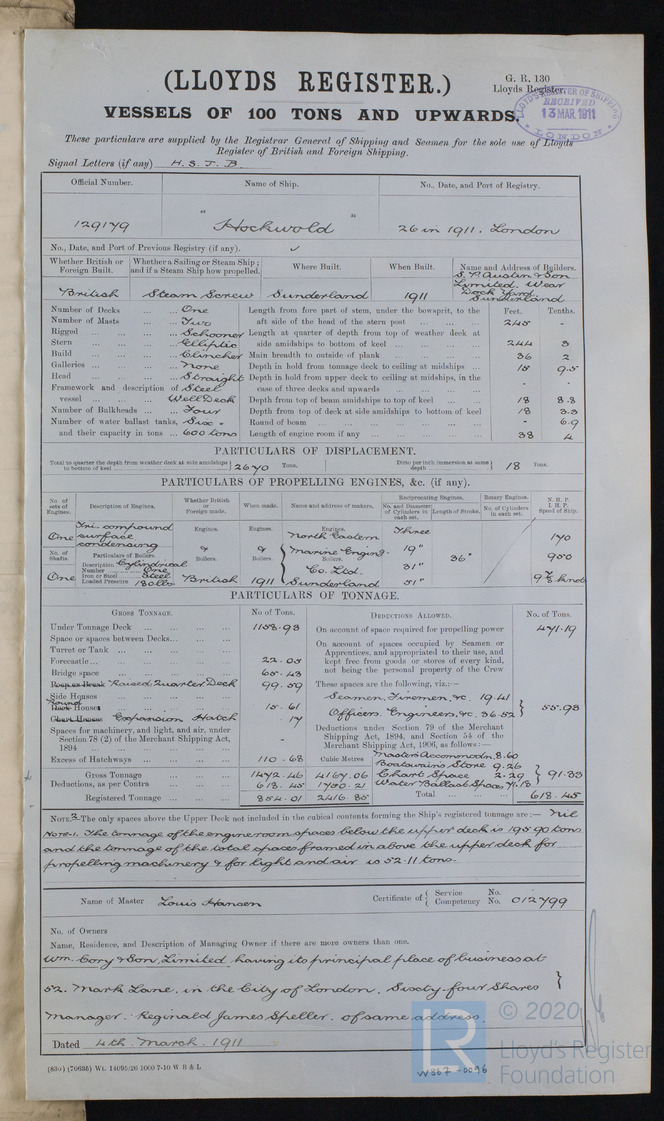 (LLOYDS REGISTER.)
G. R. 130
Lloyds Register.
LLOYD'S REGISTER OF SHIPPING
RECEIVED
13 MAR. 1911
LONDON
VESSELS OF 100 TONS AND UPWARDS.
These particulars are supplied by the Registrar General of Shipping and Seamen for the sole use of Lloyds
Register of British and Foreign Shipping.
Signal Letters (if any) H. S. T. B.
Official Number. Name of Ship. No., Date, and Port of Registry.
129179 "Hockwold" 26 in 1911. London
No., Date, and Port of Previous Registry (if any).
Whether British or Foreign Built. Whether a Sailing or Steam Ship; and if a Steam Ship how propelled. Where Built. When Built. Name and Address of Builders.
British Steam Screw Sunderland 1911 S. P. Austin & Son Limited. Wear Dock Yard Sunderland
Number of Decks ... One Length from fore part of stem, under the bowsprit, to the Feet. Tenths.
Number of Masts ... Two aft side of the head of the stern post ... 245 -
Rigged ... Schooner Length at quarter of depth from top of weather deck at
Stern ... Elliptic side amidships to bottom of keel ... 244 3
Build ... Clincher Main breadth to outside of plank ... 36 2
Galleries ... None Depth in hold from tonnage deck to ceiling at midships ... 15 9.5
Head ... Straight Depth in hold from upper deck to ceiling at midships, in the
Framework and description of Steel case of three decks and upwards ... - -
vessel ... Well Deck Depth from top of beam amidships to top of keel ... 18 8.8
Number of Bulkheads ... Four Depth from top of deck at side amidships to bottom of keel 18 3.3
Number of water ballast tanks, Six - Round of beam ... - 6.9
and their capacity in tons ... 600 tons Length of engine room if any ... 38 4
PARTICULARS OF DISPLACEMENT.
Total to quarter the depth from weather deck at side amidships to bottom of keel 2670 Tons. Ditto per inch immersion at same depth 18 Tons.
PARTICULARS OF PROPELLING ENGINES, &c. (if any).
No. of sets of Engines. Description of Engines. Whether British or Foreign made. When made. Name and address of makers. Reciprocating Engines. No. and Diameter of Cylinders in each set. Length of Stroke. Rotary Engines. No. of Cylinders in each set. N. H. P. I. H. P. Speed of Ship.
One Tri-compound surface condensing Engines. Engines. Engines. North Eastern Three 170
No. of Shafts. Particulars of Boilers. & Boilers. & Boilers. Marine Enging Boilers. 19" 36" 950
Description Cylindrical Co. Ltd. 31"
Number One
One Iron or Steel Steel British 1911 Sunderland 51" 9 7/8 knots
Loaded Pressure 180 lbs
PARTICULARS OF TONNAGE.
GROSS TONNAGE. No of Tons. DEDUCTIONS ALLOWED. No. of Tons.
Under Tonnage Deck ... 1158.93 On account of space required for propelling power 471.19
Space or spaces between Decks... On account of spaces occupied by Seamen or
Turret or Tank ... Apprentices, and appropriated to their use, and
Forecastle ... 22.05 kept free from goods or stores of every kind,
Bridge space ... 65.43 not being the personal property of the Crew
Poop or Break Raised Quarter Deck 99.59 These spaces are the following, viz.:—
Side Houses ... Seamen, Firemen, &c. 19.41
Deck Houses Round ... 15.61 Officers. Engineers, &c. 36.52 55.93
Chart Houses Expansion Hatch .17 Deductions under Section 79 of the Merchant
Spaces for machinery, and light, and air, under Shipping Act, 1894, and Section 54 of the
Section 78 (2) of the Merchant Shipping Act, Merchant Shipping Act, 1906, as follows:—
1894 ... - Master's Accommodn. 8.60
Excess of Hatchways ... 110.68 Cubic Metres Boatswain's Store 9.26
Gross Tonnage 1472.46 4167.06 Chart Space 2.29 91.33
Deductions, as per Contra 618.45 1750.21 Water Ballast Spaces 71.18
Registered Tonnage ... 854.01 2416.85 Total ... 618.45
NOTE 2.—The only spaces above the Upper Deck not included in the cubical contents forming the Ship's registered tonnage are:— Nil
Note-1. The tonnage of the engine room spaces below the upper deck is 195.90 tons
and the tonnage of the total spaces framed in above the upper deck for
propelling machinery & for light and air is 52.11 tons.
Name of Master Louis Hansen Certificate of { Service No. Competency No. 012799
No. of Owners
Name, Residence, and Description of Managing Owner if there are more owners than one.
Wm. Cory & Son, Limited having its principal place of business at
52. Mark Lane. in the City of London. Sixty-four Shares
Manager: Reginald James Speller. of same address.
Dated 4th. March. 1911
(830) (70635) Wt. 14095/26 1000 7-10 W B & L
W867-0096
LR
© 2020
Lloyd's Register
Foundation